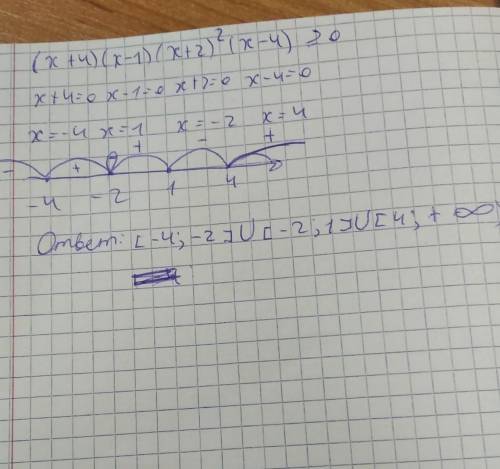 (x+4)(x-1)(x+2)²(x-4) ≥0
x+4=0 x-1=0 x+2=0 x-4=0
x=-4 x=1 x=-2 x=4
- + + - +
-4 -2 1 4
Ответ: [-4;-2]U[-2;1]U[4;+∞)